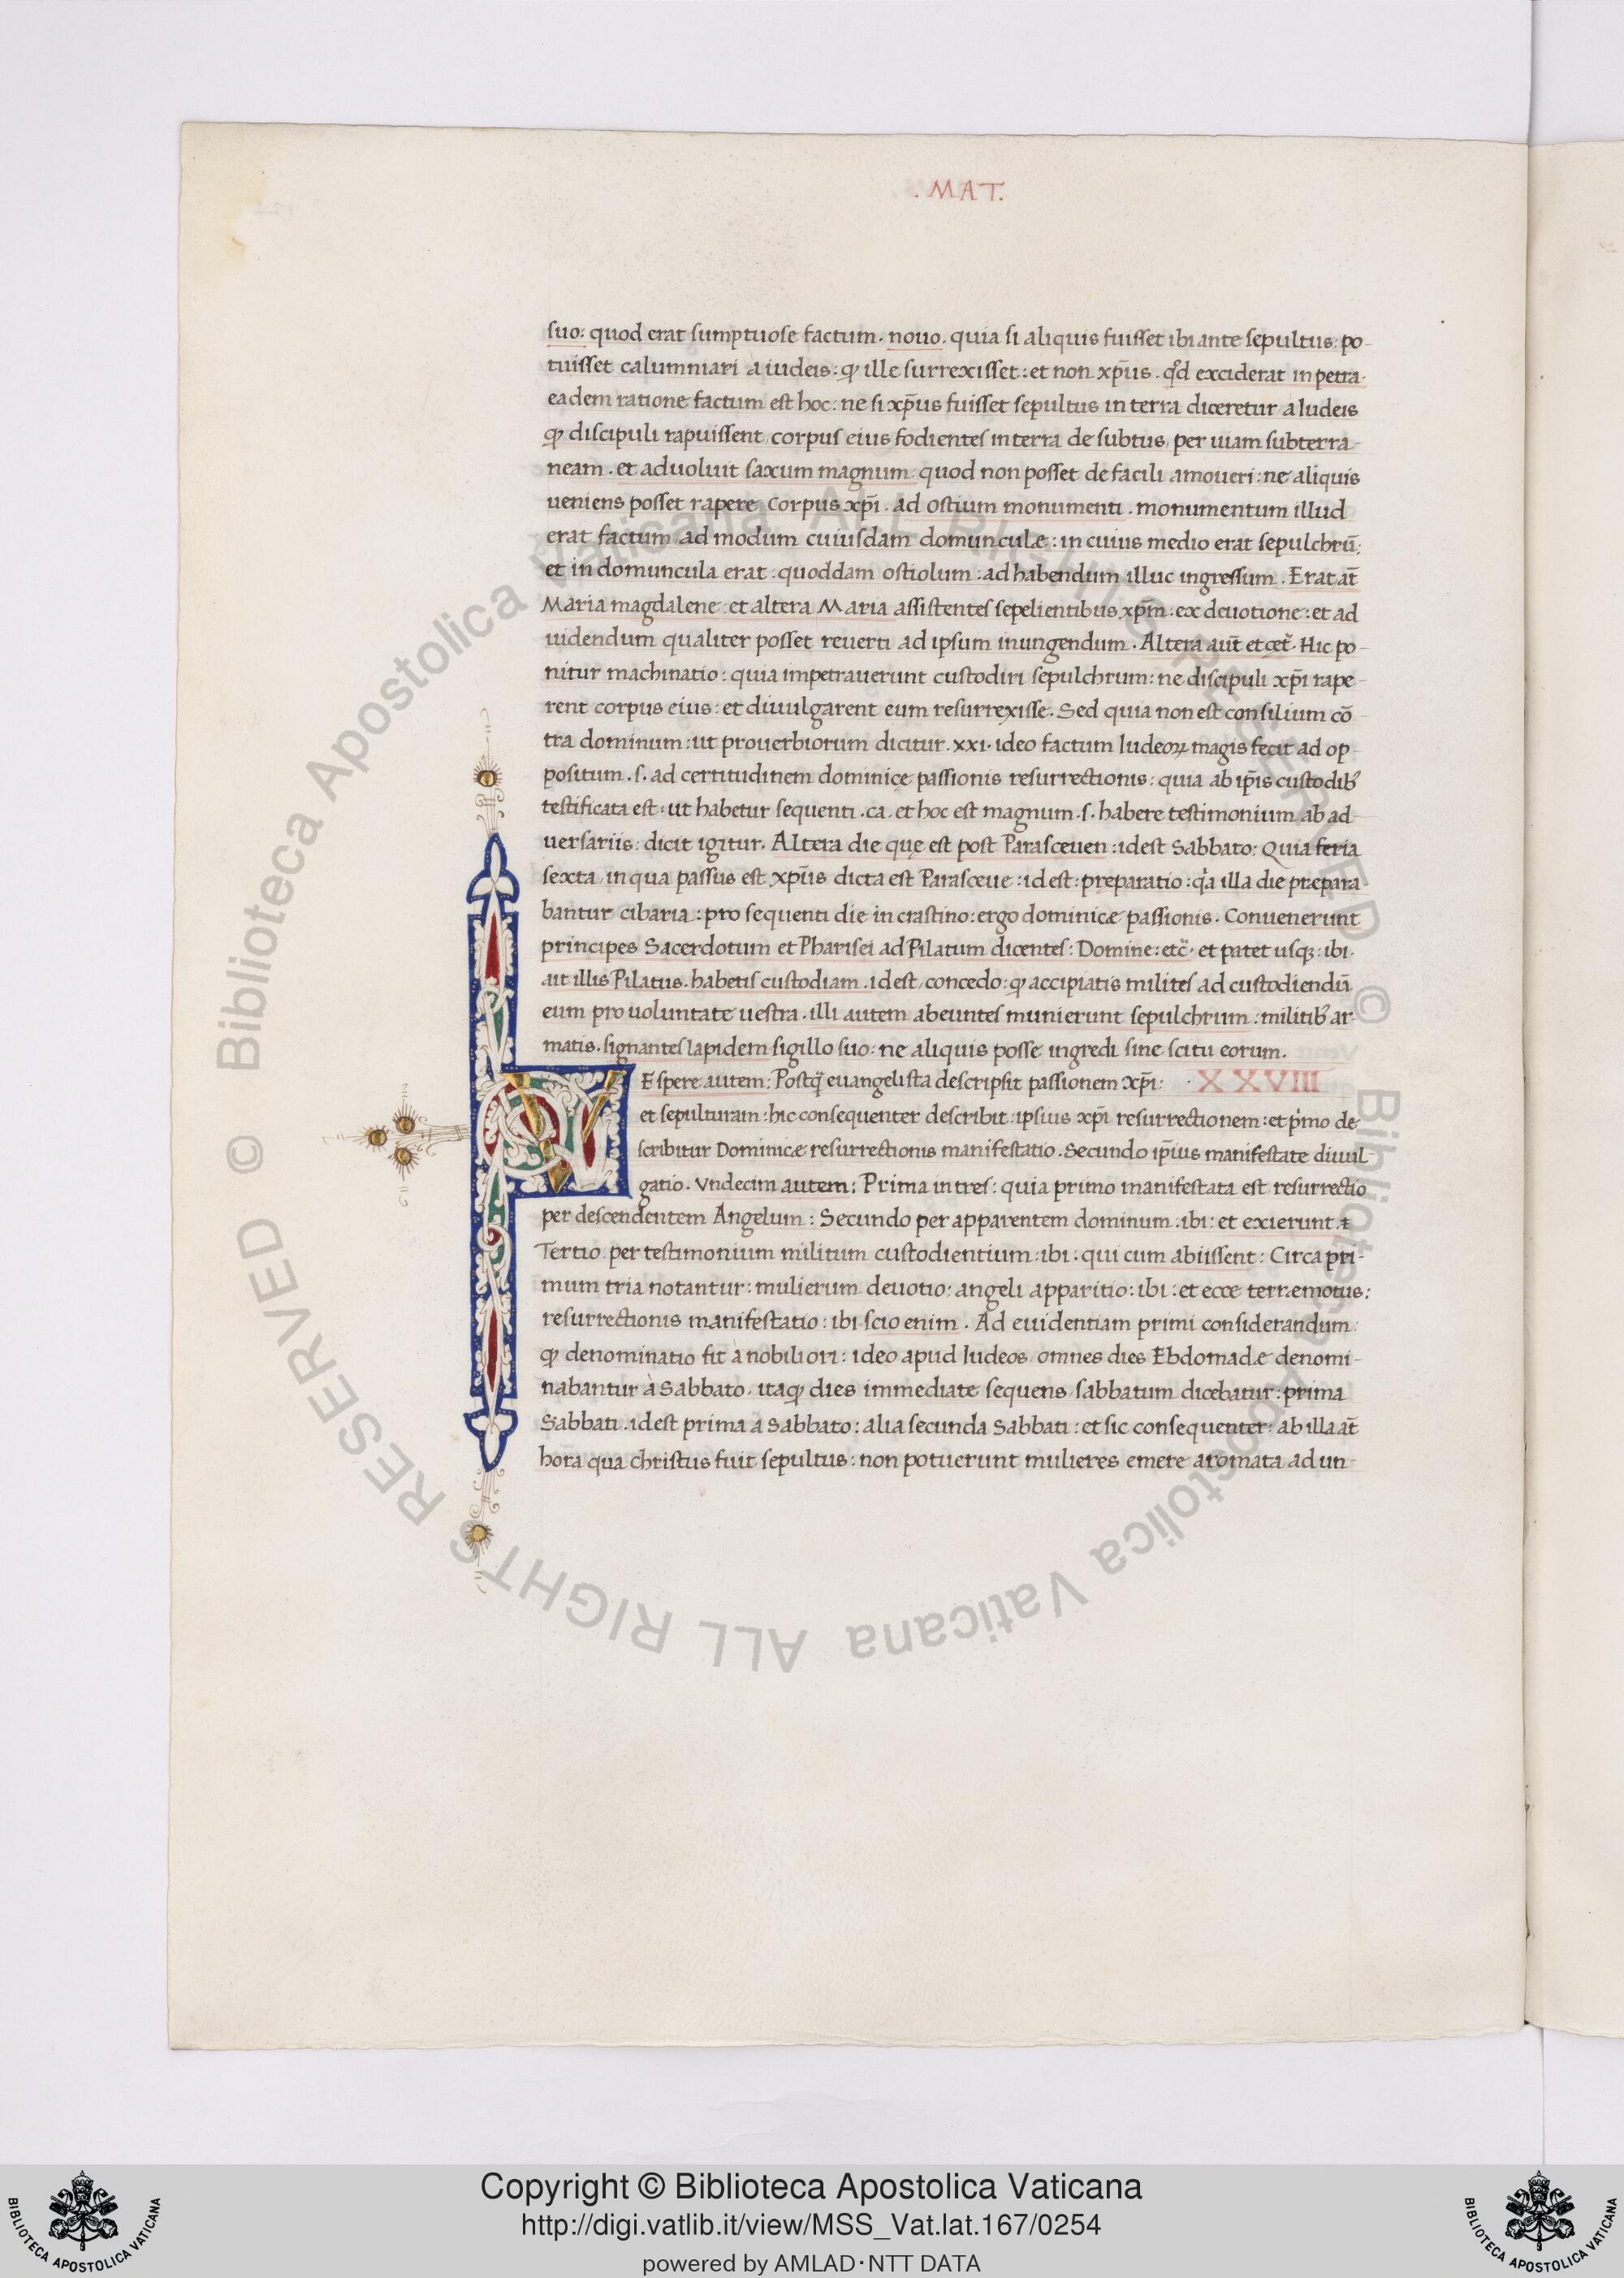 . MAT.
suo: quod erat sumptuose factum. nouo. quia si aliquis fuisset ibi ante sepultus: po-
tuisset calumniari a iudeis: ꝙ ille surrexisset: et non xp̄us. qd̓ exciderat in petra.
eadem ratione factum est hoc: ne si xp̄us fuisset sepultus in terra diceretur a Iudeis
ꝙ discipuli rapuissent corpus eius fodientes in terra de subtus, per uiam subterra-
neam. et aduoluit saxum magnum. quod non posset de facili amoueri: ne aliquis
ueniens posset rapere corpus xp̄i. ad ostium monumenti. monumentum illud
erat factum ad modum cuiusdam domunculæ: in cuius medio erat sepulchrū;
et in domuncula erat: quoddam ostiolum: ad habendum illuc ingressum. Erat at̄
Maria magdalene: et altera Maria assistentes sepelientibus xp̄m: ex deuotione: et ad
uidendum qualiter posset reuerti ad ipsum inungendum. Altera aut̄ et cet̓. Hic po-
nitur machinatio: quia impetrauerunt custodiri sepulchrum: ne discipuli xp̄i rape-
rent corpus eius: et diuulgarent eum resurrexisse. Sed quia non est consilium cō-
tra dominum: ut prouerbiorum dicitur. xxi. ideo factum Iudeoꝝ magis fecit ad op-
positum. s. ad certitudinem dominicę passionis resurrectionis: quia ab ip̄is custodib᾽
testificata est: ut habetur sequenti. ca. et hoc est magnum. s. habere testimonium ab ad-
uersariis: dicit igitur. Altera die quę est post Parasceuen: idest Sabbato: Quia feria
sexta, in qua passus est xp̄us dicta est Parasceue: idest: pręparatio: qa̓ illa die prępara-
bantur cibaria: pro sequenti die in crastino: ergo dominicæ passionis. Conuenerunt
principes Sacerdotum et Pharisei ad Pilatum dicentes: Domine: etc̓. et patet usqꝫ: ibi.
ait illis Pilatus. habetis custodiam. idest, concedo: ꝙ accipiatis milites ad custodiendū
eum pro uoluntate uestra. illi autem abeuntes munierunt sepulchrum: militib᾽ ar-
matis. signantes lapidem sigillo suo: ne aliquis posse ingredi sine scitu eorum.
VEspere autem: Postq̄ euangelista descripsit passionem xp̄i: . XXVIII
et sepulturam: hic consequenter describit: ipsius xp̄i resurrectionem: et pi̓mo de-
scribitur Dominicæ resurrectionis manifestatio. Secundo ip̄ius manifestate diuul-
gatio. Vndecim autem: Prima in tres: quia primo manifestata est resurrectio
per descendentem Angelum: Secundo per apparentem dominum. ibi: et exierunt. ⁊
Tertio per testimonium militum custodientium: ibi: qui cum abiissent: Circa pri-
mum tria notantur: mulierum deuotio: angeli apparitio: ibi: et ecce terræmotus:
resurrectionis manifestatio: ibi scio enim. Ad euidentiam primi considerandum:
ꝙ denominatio fit a nobiliori: ideo apud Iudeos, omnes dies Ebdomadæ denomi-
nabantur à Sabbato, itaqꝫ dies immediate sequens, sabbatum dicebatur: prima
Sabbati. idest prima a Sabbato: alia secunda Sabbati: et sic consequenter: ab illa at̄
hora qua christus fuit sepultus: non potuerunt mulieres emere aromata ad un-
© Biblioteca Apostolica Vaticana ALL RIGHTS RESERVED © Biblioteca Apostolica Vaticana ALL RIGHTS RESERVED
BIBLIOTECA APOSTOLICA VATICANA
Copyright © Biblioteca Apostolica Vaticana
http://digi.vatlib.it/view/MSS_Vat.lat.167/0254
powered by AMLAD·NTT DATA
BIBLIOTECA APOSTOLICA VATICANA